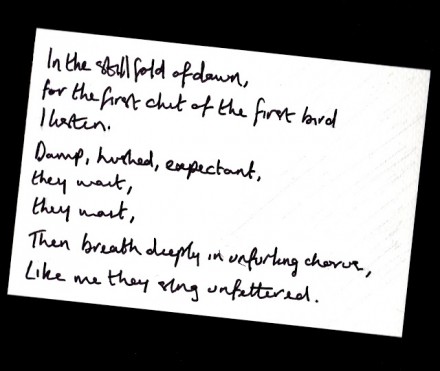 In the still fold of dawn,
for the first chit of the first bird
I listen.
Damp, hushed, expectant,
they wait,
they wait,
Then breath deeply in unfurling chorus,
Like me they sing unfettered.